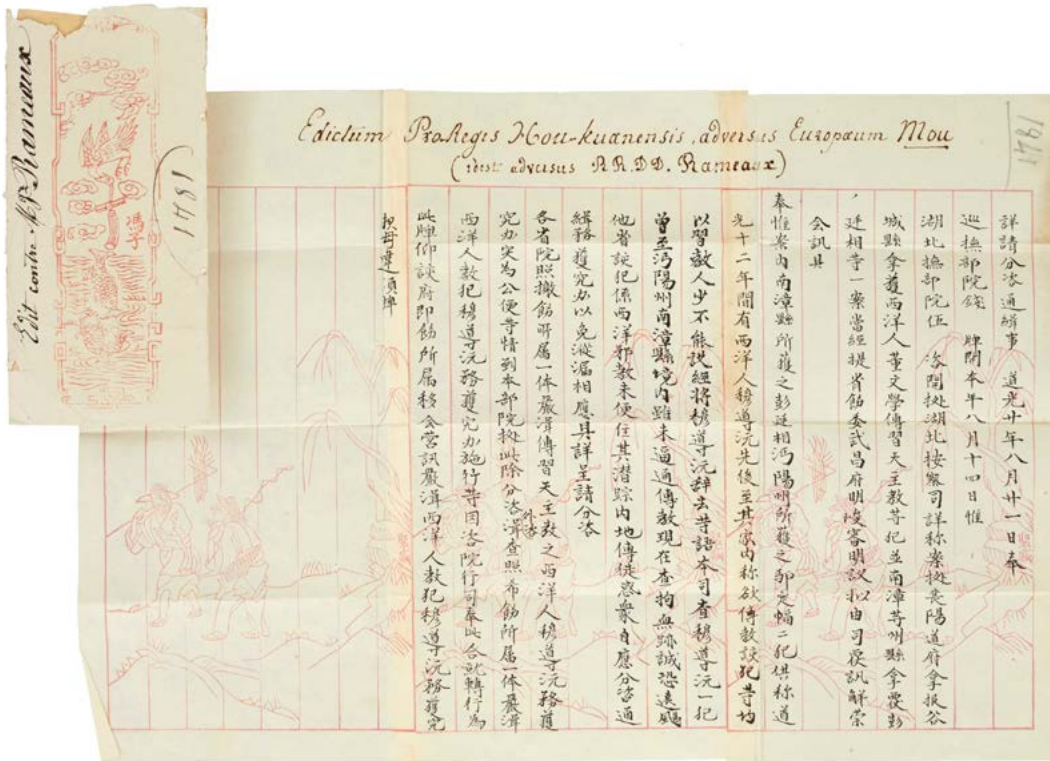 Edit contre M.P. Rameaux
馮子
1841
Edictum ProRegis Hou-kuanensis, adversus Europæum Mou
(idest adversus RR.DD. Rameaux)
1841
詳請分咨通緝事 道光廿年八月廿一日奉
巡撫部院錢 牌開本年八月十四日准
湖北撫部院伍 咨開據湖北按察司詳称案據襄陽道府拿报谷
城縣拿獲西洋人董文學傳習天主教等犯並南漳等州縣拿獲彭
廷相等一案當經提省飭委武昌府明峻審明議拟由司覆訊解荣
会訊具
奉惟案内南漳縣所獲之彭廷相沔陽州所獲之邹定幅二犯供称道
光十二年間有西洋人穆導沅先後至其家内称欲傳教該犯等均
以習教人少不能説經將穆導沅辞去等語本司查穆導沅一犯
曾至沔陽州南漳縣境内雖未逼通傳教現在查拘無跡誠恐遠颺
他省該犯係西洋邪教未便任其潜踪内地傳徒惑衆自應分咨通
緝務獲究办以免縱漏相應具詳呈請分咨
各省院照撤飭所属一体嚴緝傳習天主教之西洋人穆導沅務獲
究办实為公便等情到本部院據此除分咨外咨緝查照希飭所属一体嚴緝
西洋人教犯穆導沅務獲究办施行等因咨院行司奉此合就轉行為
此牌仰該府即飭所属移会营訊嚴緝西洋人教犯穆導沅務獲究
报毋違須牌